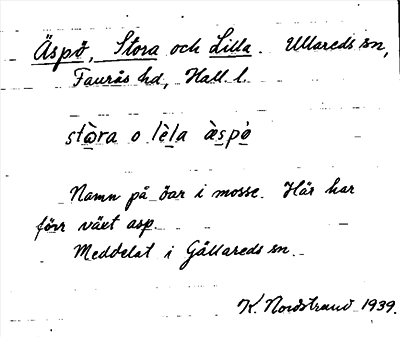 Äspö, Stora och Lilla. Ullareds sn,
Faurås hd, Hall. l.
stὼra o lèla ӓ̀spö̀
Namn på öar i mosse. Här har
förr växt asp.
Meddelat i Gällareds sn.
K. Nordstrand 1939.